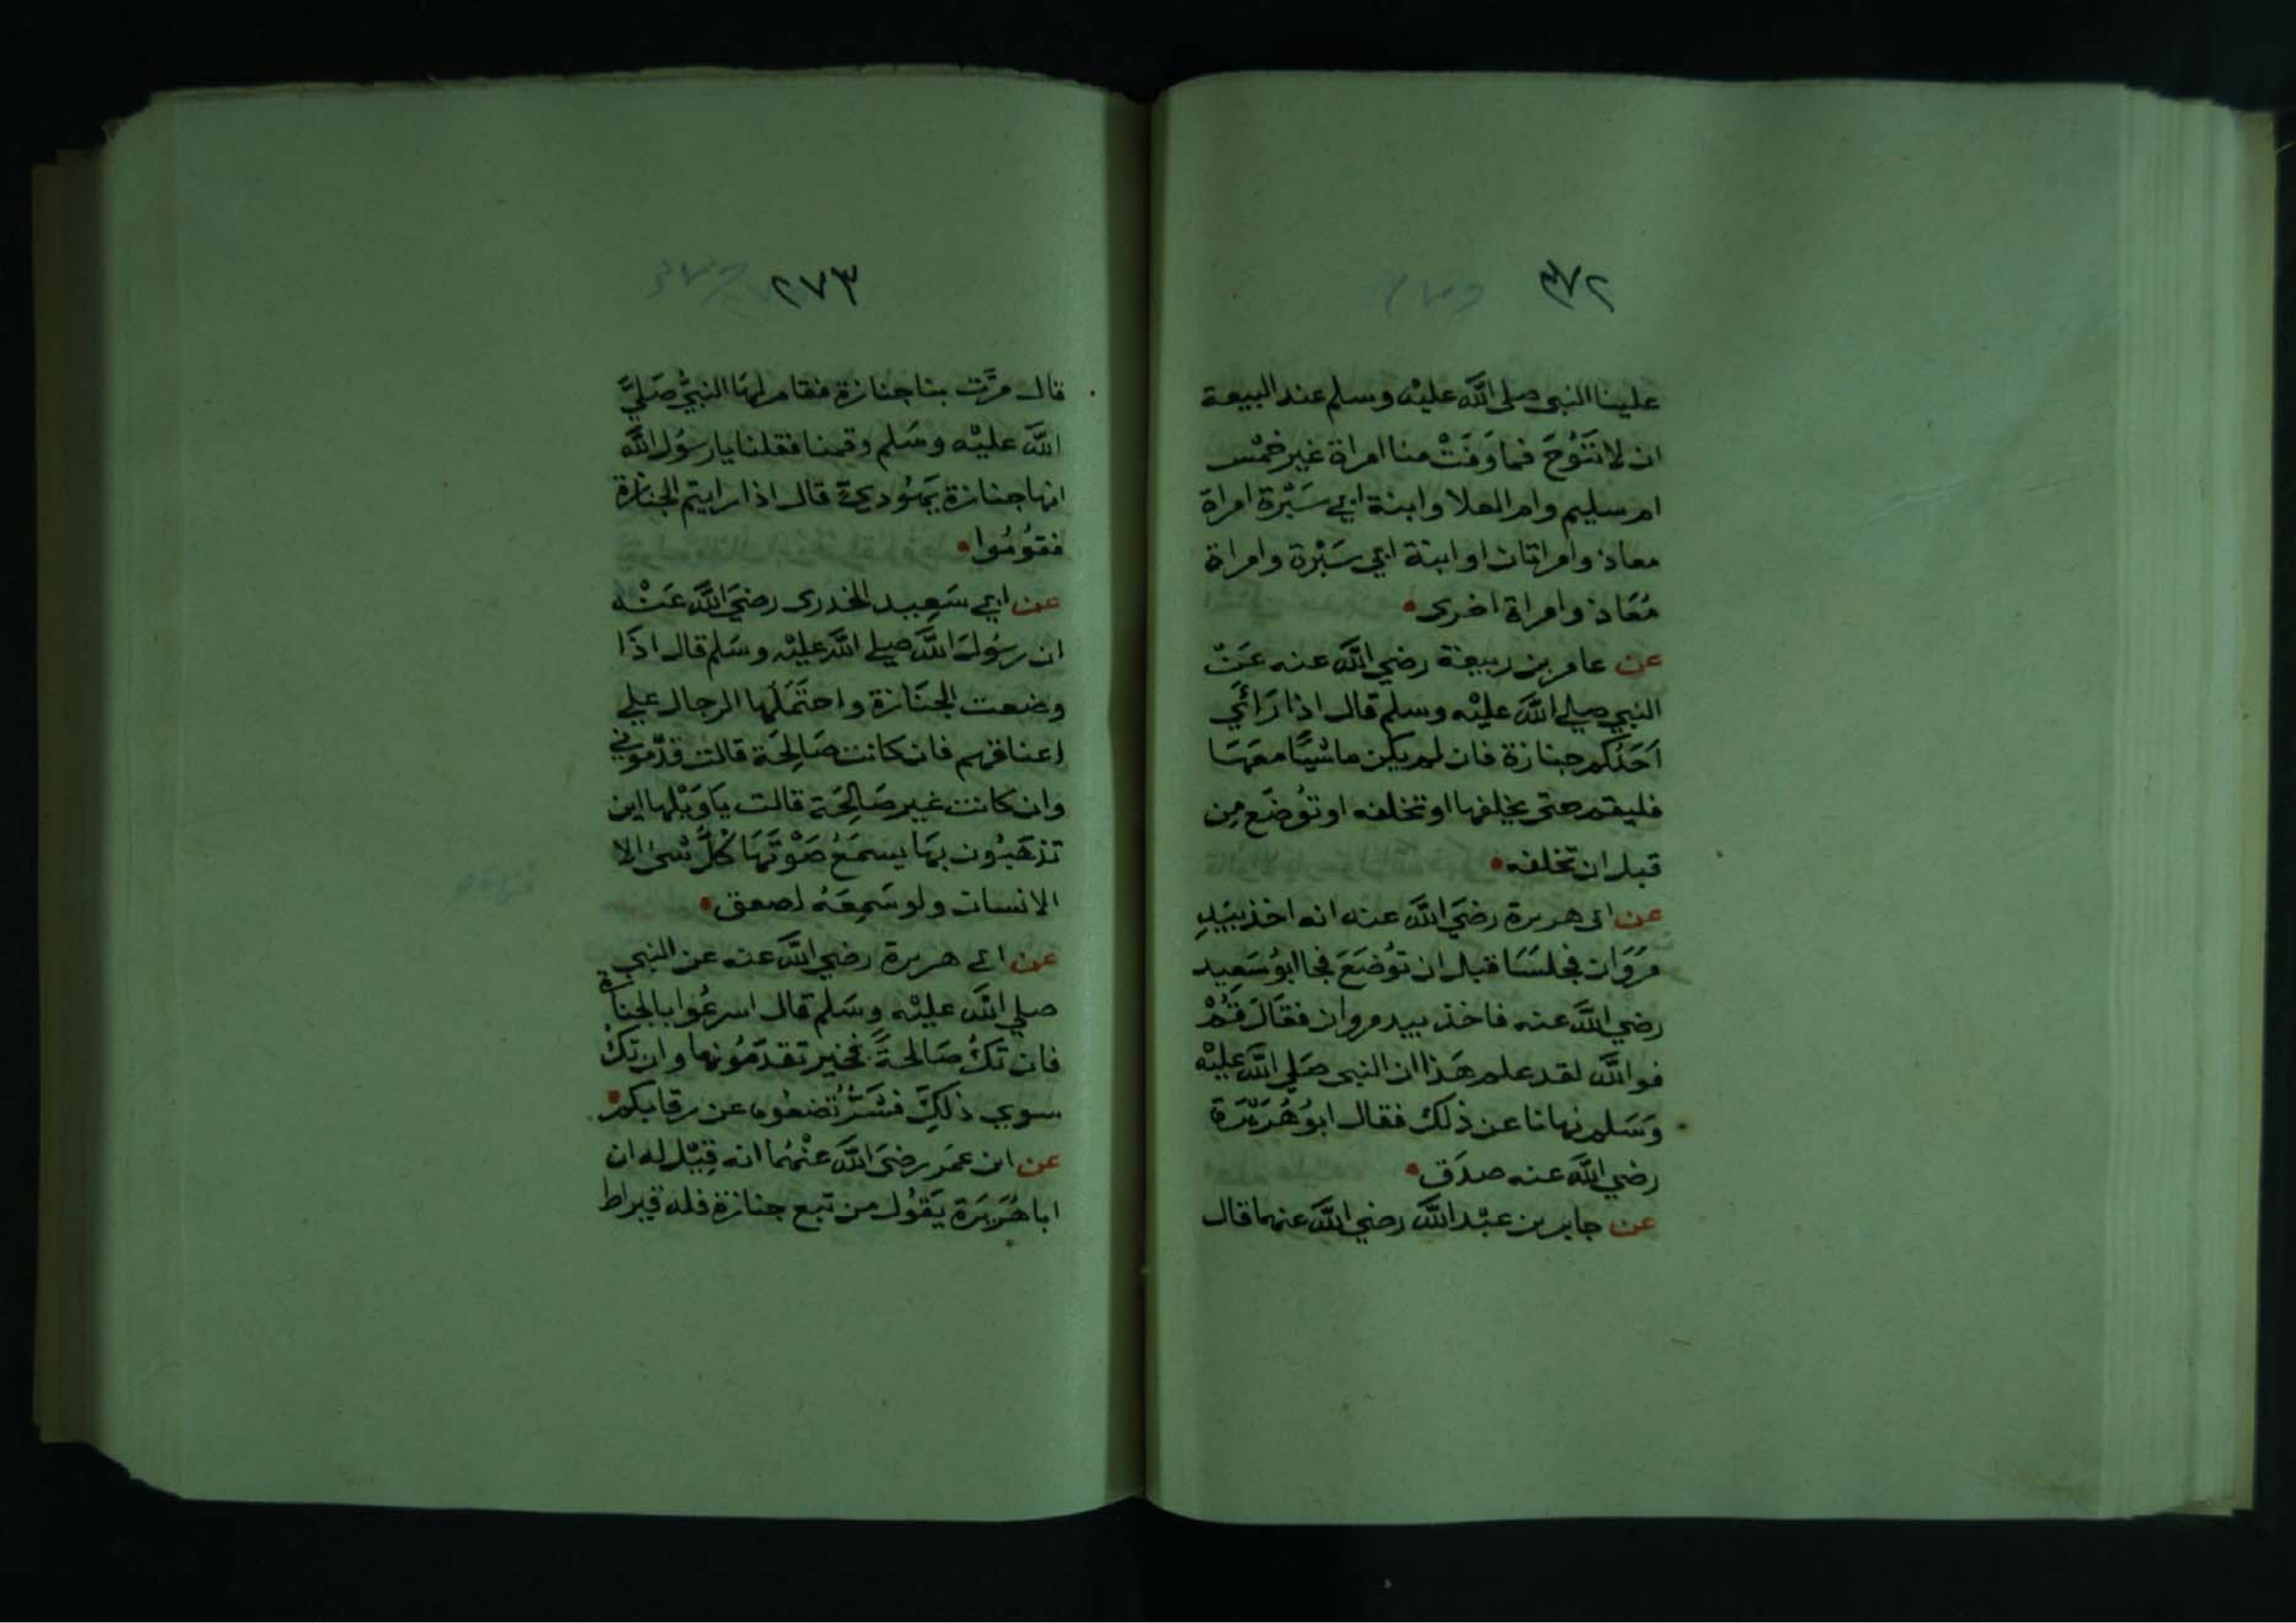 ٢٧٢
علينا النبي صلى اللَّه عليْه وسلم عند البيعة
ان لا نَنُوْحَ فما وَفَتْ منا امراة غير خمْس
ام سليم وام العلا وابنة ابي سَبْرَة امراة
معاذ وامراتان او ابنة ابي سَبْرَة وامراة
مُعَاذ وامراة اخرى
عن عامر بن ربيعة رضي اللَّه عنه عَنْ
النبي صلي اللَّه عليْه وسلم قال اذا رَائَي
اَحَدُكم جنازة فان لم يكن ماشيًا معَهَا
فليقم حتى يخلفها او تخلفه او تُوضَع مِن
قبل ان تخلفه
عن ابى هريرة رضيَ اللَّه عنه انه اخذ بيَدِ
مَرْوَان فجلسَا قبل ان تُوضَعَ فجا ابُو سَعِيد
رضي اللَّه عنه فاخذ بيد مروان فقَالَ قُمْ
فواللَّه لقد علم هَذا ان النبي صَلي اللَّه عليْه
وَسَلم نهانا عن ذلك فقال ابوُ هُرَيْرَة
رضي اللَّه عنه صدَق
عن جابر بن عبْد اللَّه رضي اللَّه عنهما قال
٢٧٣
قال مرَّت بنا جنازة فقام لهَا النبيُّ صَليَّ
اللَّه عليْه وسَلم وقمنا فقلنا يا رسوُل اللَّه
انها جنازة يَهُودية قال اذا رايتم الجنازة
فقوُمُوا
عن ابي سَعِيد الخدرى رضيَ اللَّه عَنْه
ان رسُولَ اللَّه صلي اللَّه عليْه وسَلم قال اذَا
وضعت الجنَازة واحتَمَلَها الرجال علي
اعناقهم فان كانت صَالِحَة قالت قدّموني
وان كانت غير صَالِحَة قالت يَا وَيْلها اين
تذهَبُون بهَا يسمَعُ صَوْتَهَا كُلُّ شىْ الا
الانسان ولو سَمِعَهُ لصعق
عن ابي هريرة رضي اللَّه عنه عن النبي
صلي اللَّه عليْه وسَلم قال اسرعُوا بالجنازة
فان تكُ صَالحةً فخير تقدمُونها وان تكُ
سوي ذلكَ فشَرٌّ تضعُونه عن رقابكم
عن ابن عمَر رضيَ اللَّه عنْهُما انه قِيْل له ان
ابا هُرَيرَة يَقوُل من تبع جنازة فله قيراط